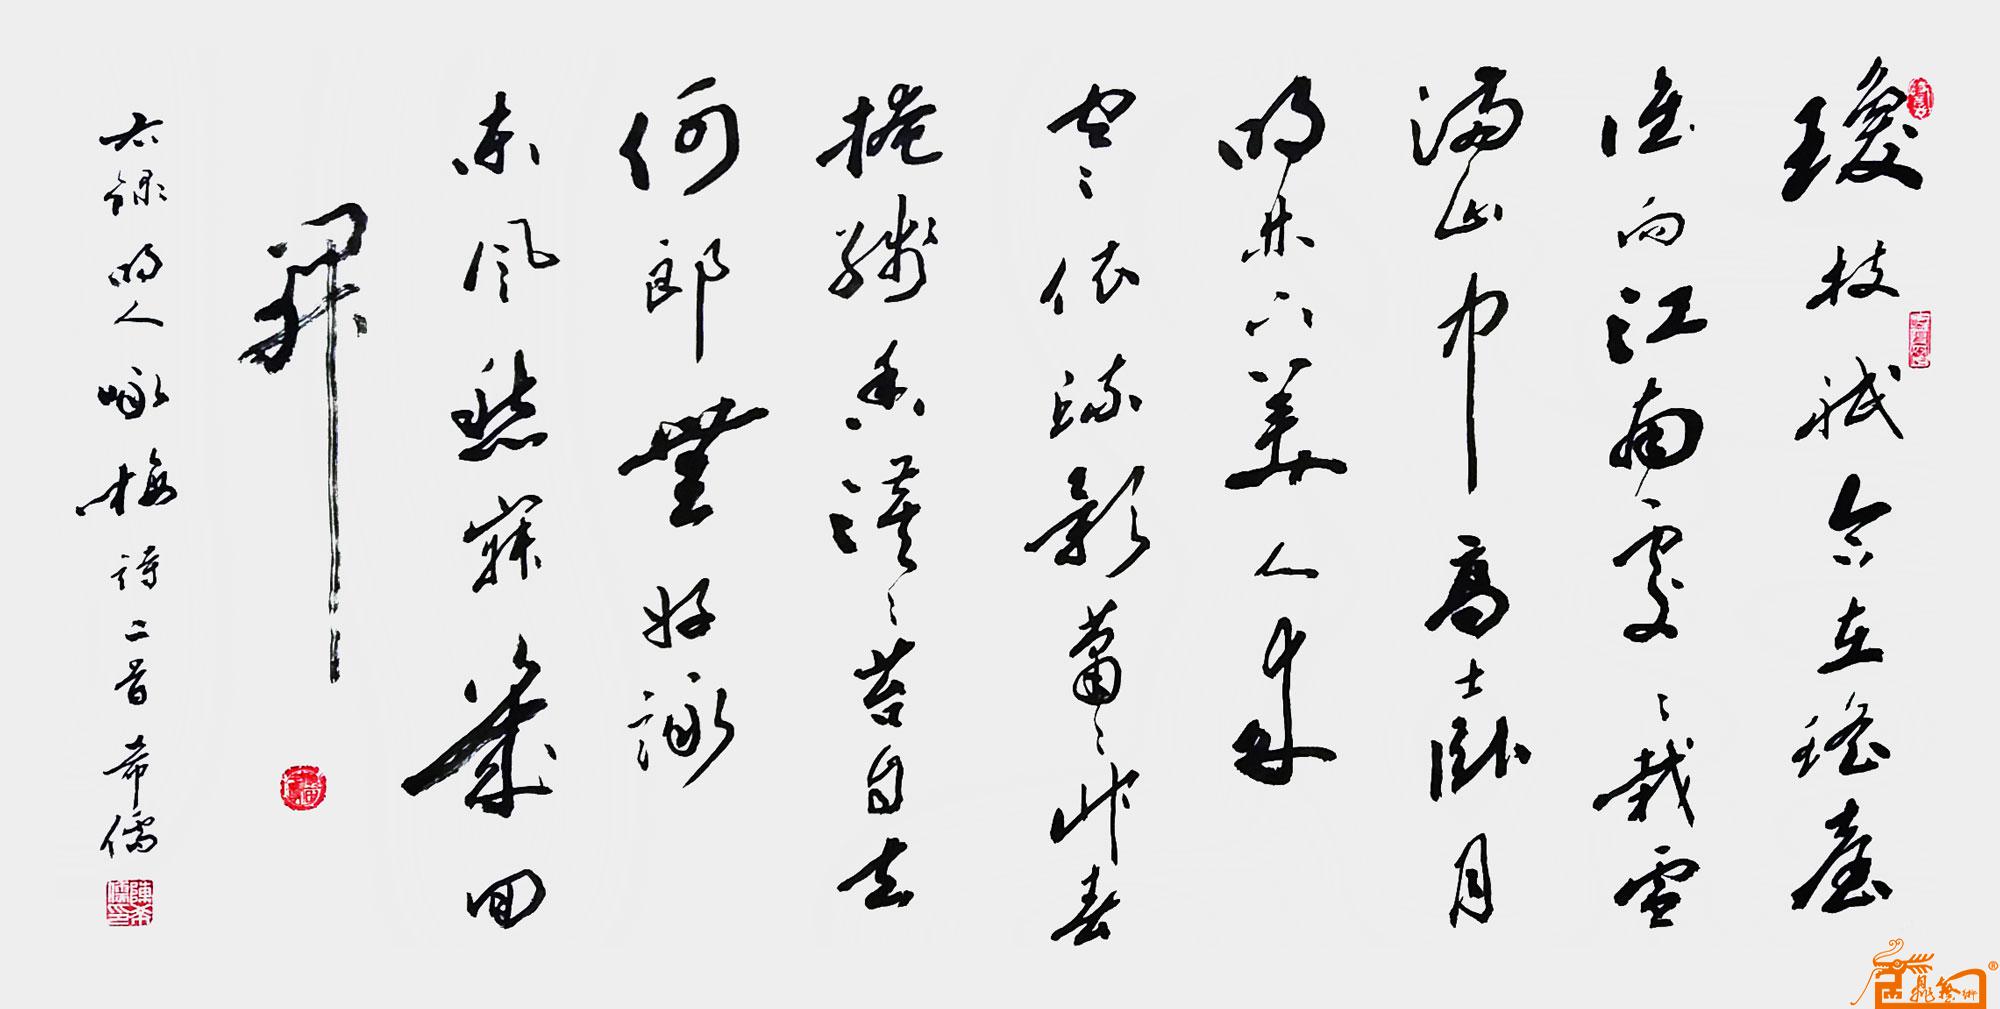 瓊枝祇合在瑤臺
誰向江南處々栽雪
滿山中高士卧月
明林下美人來
寒依疏影蕭々竹春
掩殘香漠々苔自去
何郎無好詠
東風愁寂幾回
開
右錄明人咏梅詩二首 希儒
陳希儒印